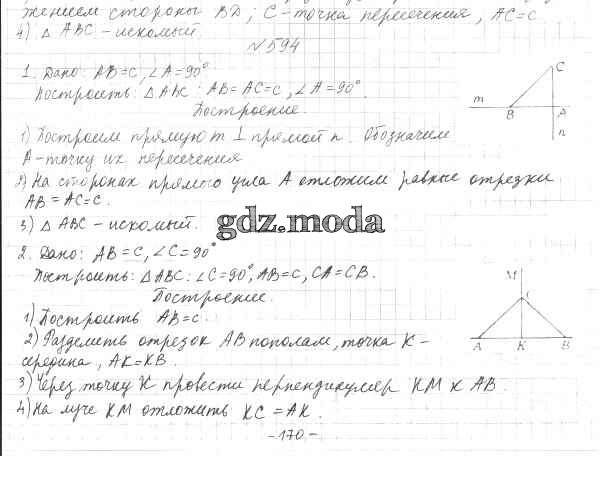 жением стороны BD; C - точка пересечения, AC = C.
4) △ ABC - искомый.
№ 594
1. Дано: AB = C, ∠A = 90°
Построить: △ ABC: AB = AC = C, ∠A = 90°.
Построение.
1) Построим прямую m ⊥ прямой n. Обозначим
A - точку их пересечения
2) На сторонах прямого угла A отложим равные отрезки
AB = AC = C.
3) △ ABC - искомый.
gdz.moda
2. Дано: AB = C, ∠C = 90°
Построить: △ ABC: ∠C = 90°, AB = C, CA = CB.
Построение.
1) Построить AB = C.
2) Разделить отрезок AB пополам, точка K -
середина, AK = KB.
3) Через точку K провести перпендикуляр KM к AB.
4) На луче KM отложить KC = AK.
- 170 -
C
m
B
A
n
M
C
A
K
B